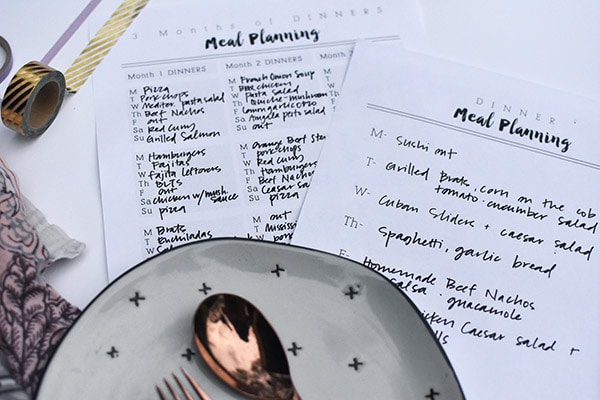 3 Months of DINNERS
Meal Planning
Month 1 DINNERS
M Pizza
T Porkchops
W Mediterr. pasta salad
Th Beef Nachos
F out
Sa Red Curry
Su Grilled Salmon
M Hamburgers
T Fajitas
W Fajita leftovers
Th BLTS
F out
Sa chicken w/mush. sauce
Su pizza
M Brats
T Enchiladas
W Salads
Month 2 DINNERS
M French Onion Soup
T chicken
W Pasta Salad
Th Quiche-mushroom
F
Sa Angela pesto salad
Su out
M Orange Beef Ste
T porkchops
W Red Curry
Th hamburgers
F Beef Nachos
Sa Ceasar sa
Su pizza
M out
T Mississ
W por
DINNER
Meal Planning
M- Sushi out
T- Grilled Brats, corn on the cob
tomato-cucumber salad
W- Cuban Sliders + caesar salad
Th- Spaghetti, garlic bread
F- Homemade Beef Nachos
Salsa, guacamole
Chicken Caesar salad +
lls